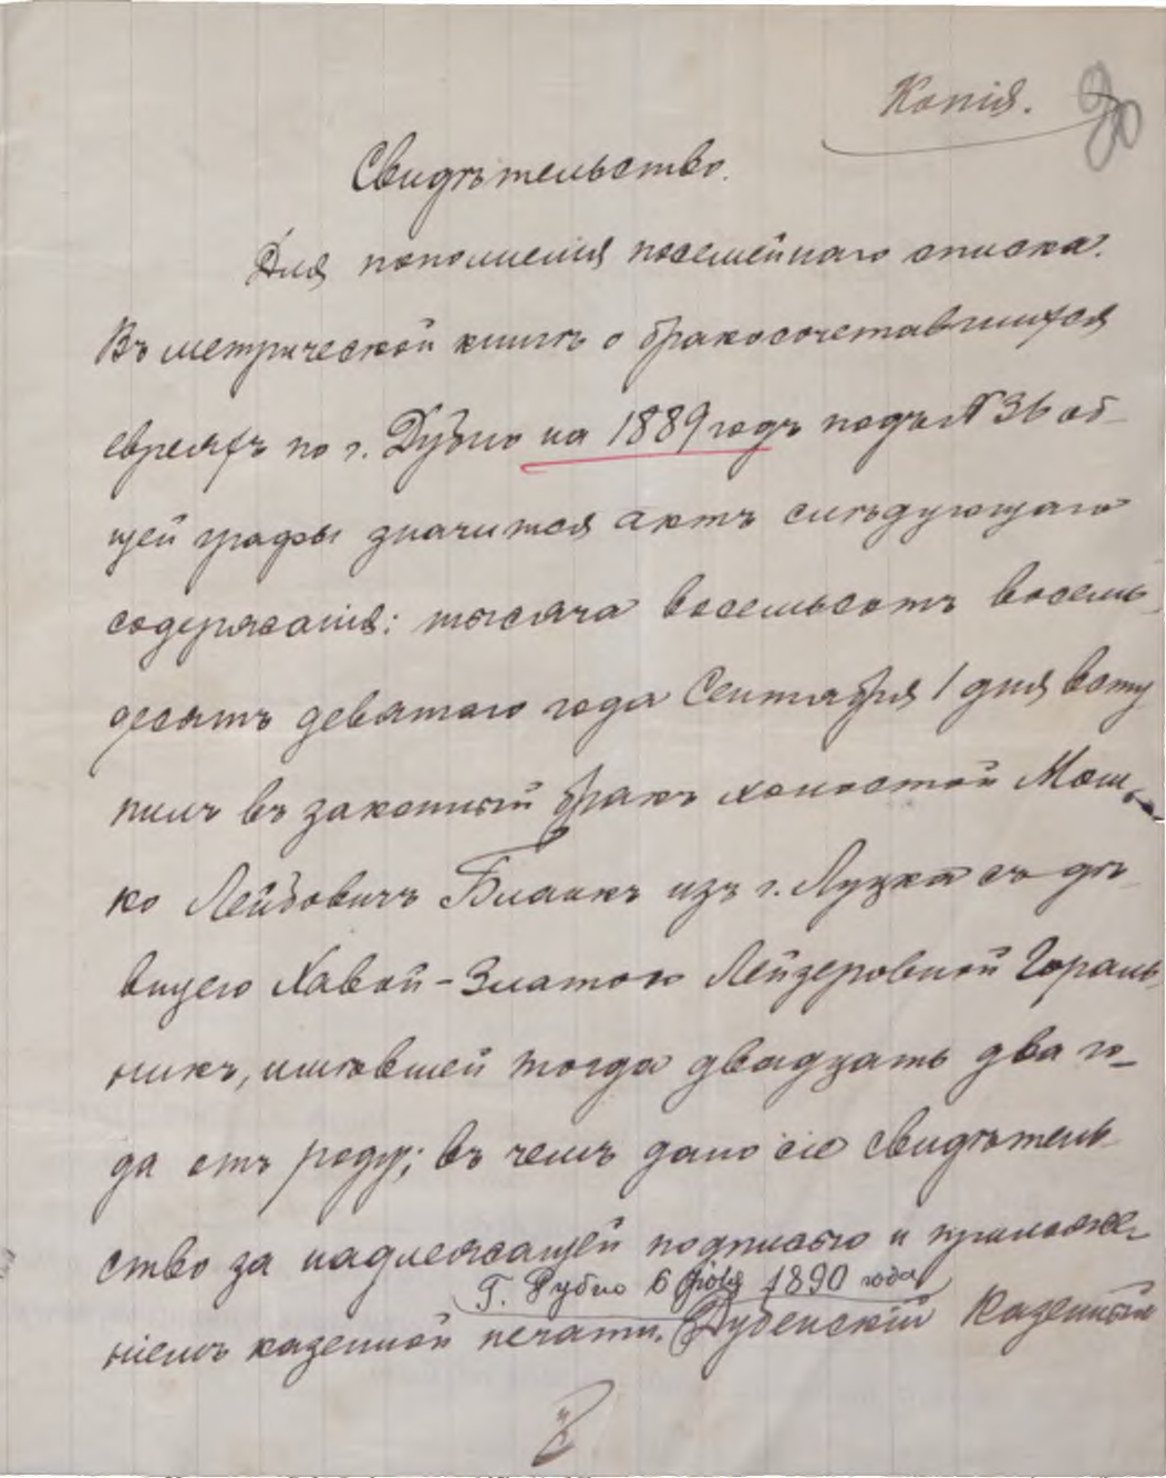 Копія.
20
Свидѣтельство.
Для пополненія посемейнаго списка.
Въ метрической книгѣ о бракосочетавшихся
евреяхъ по г. Дубно на 1889 годъ подъ № 36 об-
щей графы значится актъ слѣдующаго
содержанія: тысяча восемьсотъ восемь
десятъ девятаго года Сентября 1 дня всту
пилъ въ законный бракъ холостой Мош-
ко Лейбовичъ Бланкъ изъ г. Луцка съ дѣ-
вицею Хавой-Златою Лейзеровной Гораль-
никъ, имѣвшей тогда двадцать два го-
да отъ роду; въ чемъ дано сіе свидѣтель
ство за надлежащей подписью и приложе-
Г. Дубно 6 1890 года
ніемъ казенной печати. Дубенскій Казенный